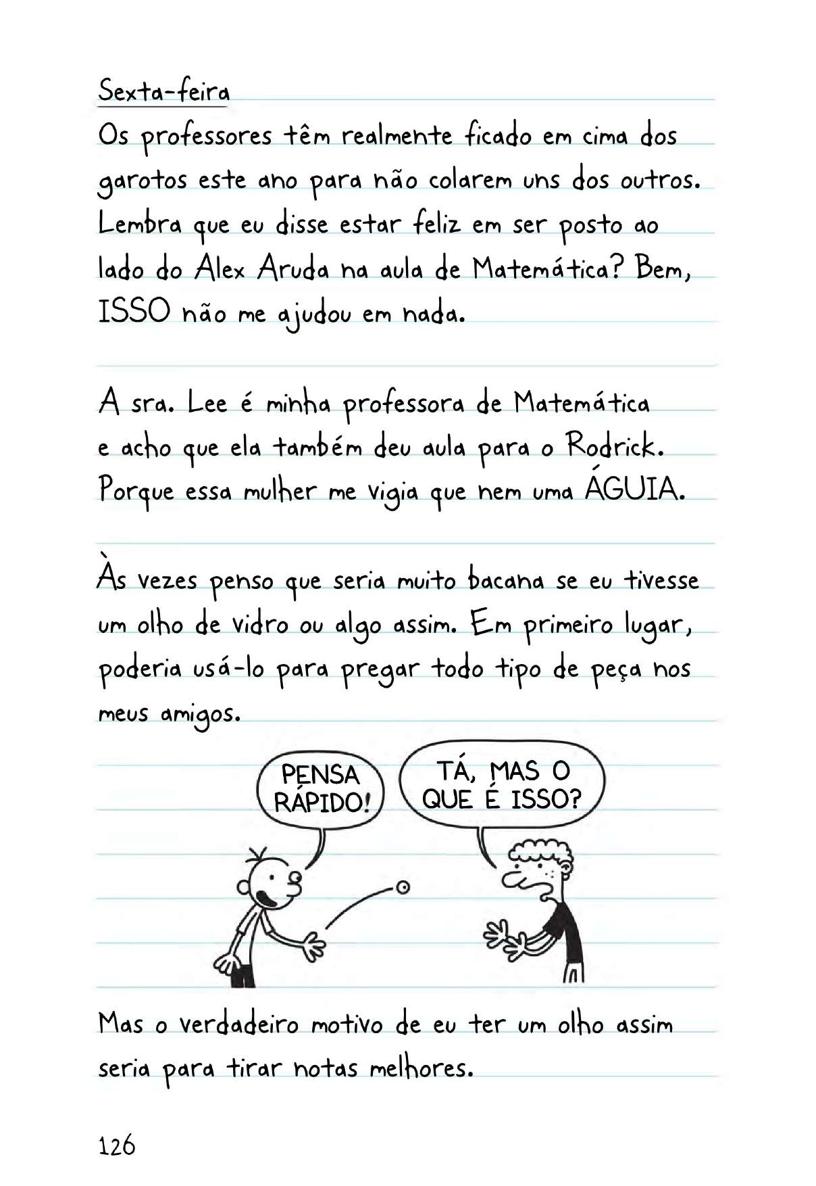 Sexta-feira
Os professores têm realmente ficado em cima dos
garotos este ano para não colarem uns dos outros.
Lembra que eu disse estar feliz em ser posto ao
lado do Alex Aruda na aula de Matemática? Bem,
ISSO não me ajudou em nada.
A sra. Lee é minha professora de Matemática
e acho que ela também deu aula para o Rodrick.
Porque essa mulher me vigia que nem uma ÁGUIA.
Às vezes penso que seria muito bacana se eu tivesse
um olho de vidro ou algo assim. Em primeiro lugar,
poderia usá-lo para pregar todo tipo de peça nos
meus amigos.
PENSA
RÁPIDO!
TÁ, MAS O
QUE É ISSO?
Mas o verdadeiro motivo de eu ter um olho assim
seria para tirar notas melhores.
126